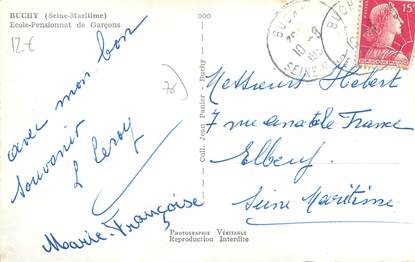 BUCHY (Seine-Maritime)
Ecole-Pensionnat de Garçons
12 €
avec mon bon
souvenir
L Leroy
Marie-Françoise
Coll. Jean Panier - Buchy
PHOTOGRAPHIE VÉRITABLE
Reproduction Interdite
BUCHY
10-8
SEINE
15F
Messieurs Hébert
7 rue Anatole France
Elbeuf
Seine Maritime